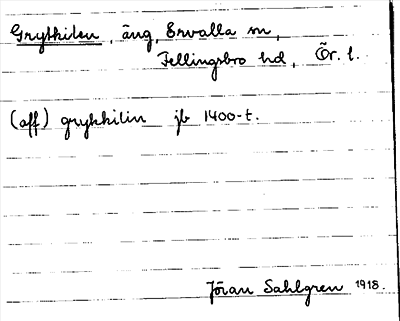 Grythilen, äng, Ervalla sn,
Fellingsbro hd, Ör. l.
(aff) grykkilin jb 1400-t.
Jöran Sahlgren 1918.